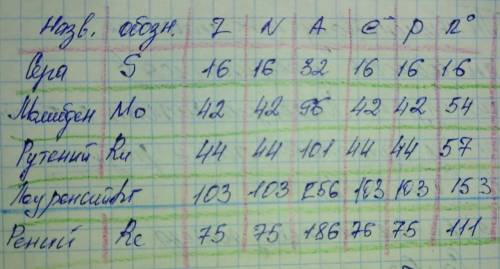 Назв. обозн. Z N A e⁻ p n°
Сера S 16 16 32 16 16 16
Молибден Mo 42 42 96 42 42 54
Рутений Ru 44 44 101 44 44 57
Лоуренсий 103 103 256 103 103 153
Рений Re 75 75 186 76 75 111